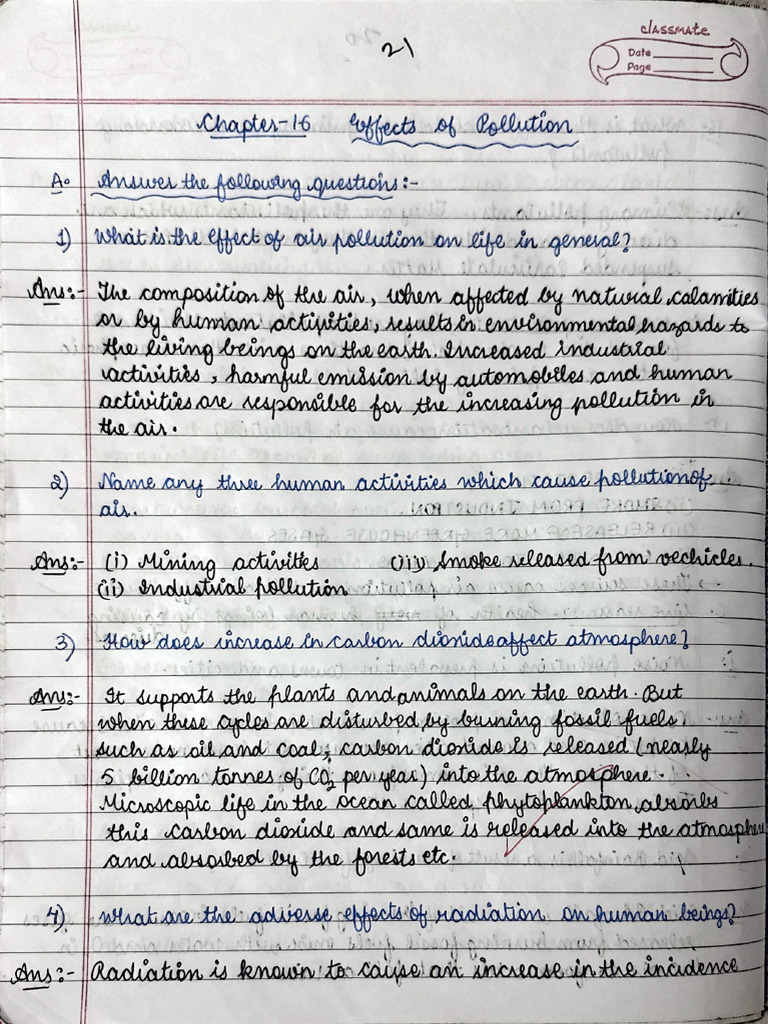 21
classmate
Date
Page
Chapter-16 Effects of Pollution
A. Answer the following questions:-
1) What is the effect of air pollution on life in general?
Ans:- The composition of the air, when affected by natural calamities
or by human activities, results in environmental hazards to
the living beings on the earth. Increased industrial
activities, harmful emission by automobiles and human
activities are responsible for the increasing pollution in
the air.
2) Name any three human activities which cause pollution of
air.
Ans:- (i) Mining activities (iii) Smoke released from vechicles.
(ii) Industrial pollution
3) How does increase in carbon dioxide affect atmosphere?
Ans:- It supports the plants and animals on the earth. But
when these cycles are disturbed by burning fossil fuels.
such as oil and coal; carbon dioxide is released (nearly
5 billion tonnes of CO2 per year) into the atmosphere.
Microscopic life in the ocean called phytoplankton, absorbs
this carbon dioxide and same is released into the atmosphere
and absorbed by the forests etc.
4) What are the adverse effects of radiation on human beings?
Ans:- Radiation is known to cause an increase in the incidence